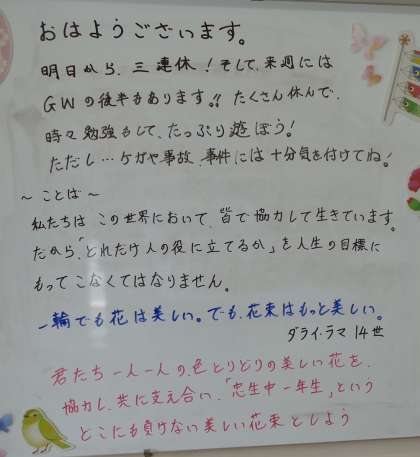 おはようございます。
明日から、三連休！そして、来週には
GWの後半もあります!! たくさん休んで、
時々勉強もして、たっぷり遊ぼう！
ただし…ケガや事故、事件には十分気を付けてね！
～ことば～
私たちは この世界において、皆で協力して生きています。
だから、「どれだけ人の役に立てるか」を人生の目標に
もってこなくてはなりません。
一輪でも花は美しい。でも、花束はもっと美しい。
ダライ・ラマ 14世
君たち一人一人の色とりどりの美しい花を、
協力し、共に支え合い、「忠生中一年生」という
どこにも負けない美しい花束としよう